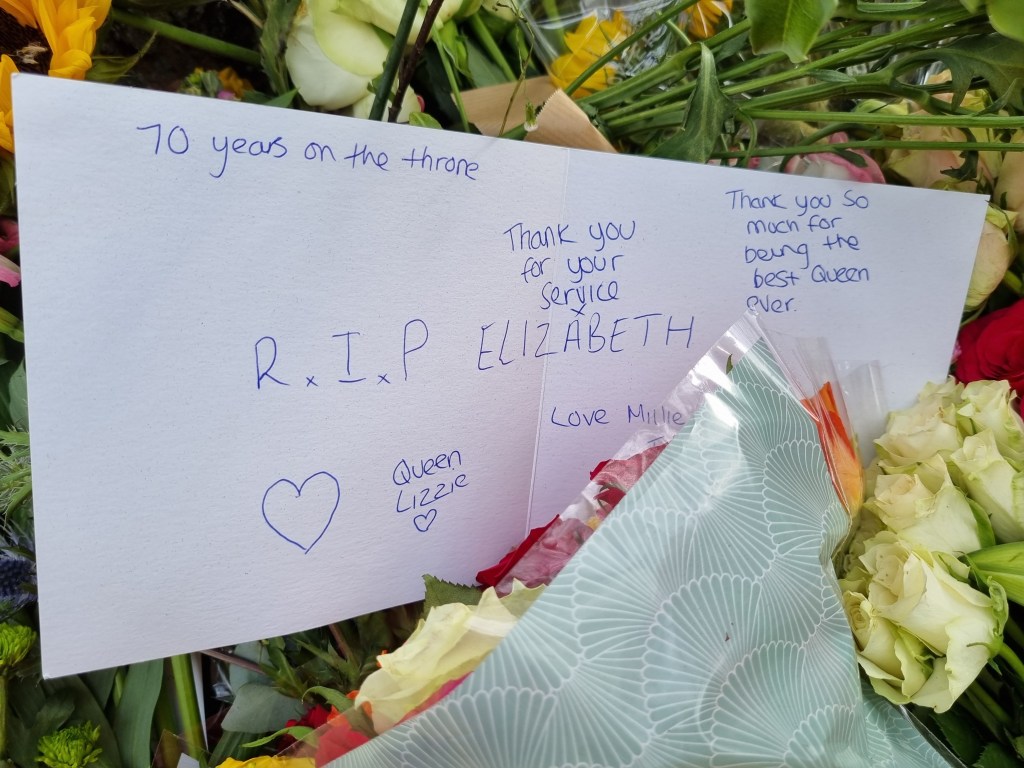 70 years on the throne
Thank you
for your
service
x
R.x I.x P ELIZABETH
Thank you so
much for
being the
best Queen
ever.
Love Millie
Queen
Lizzie